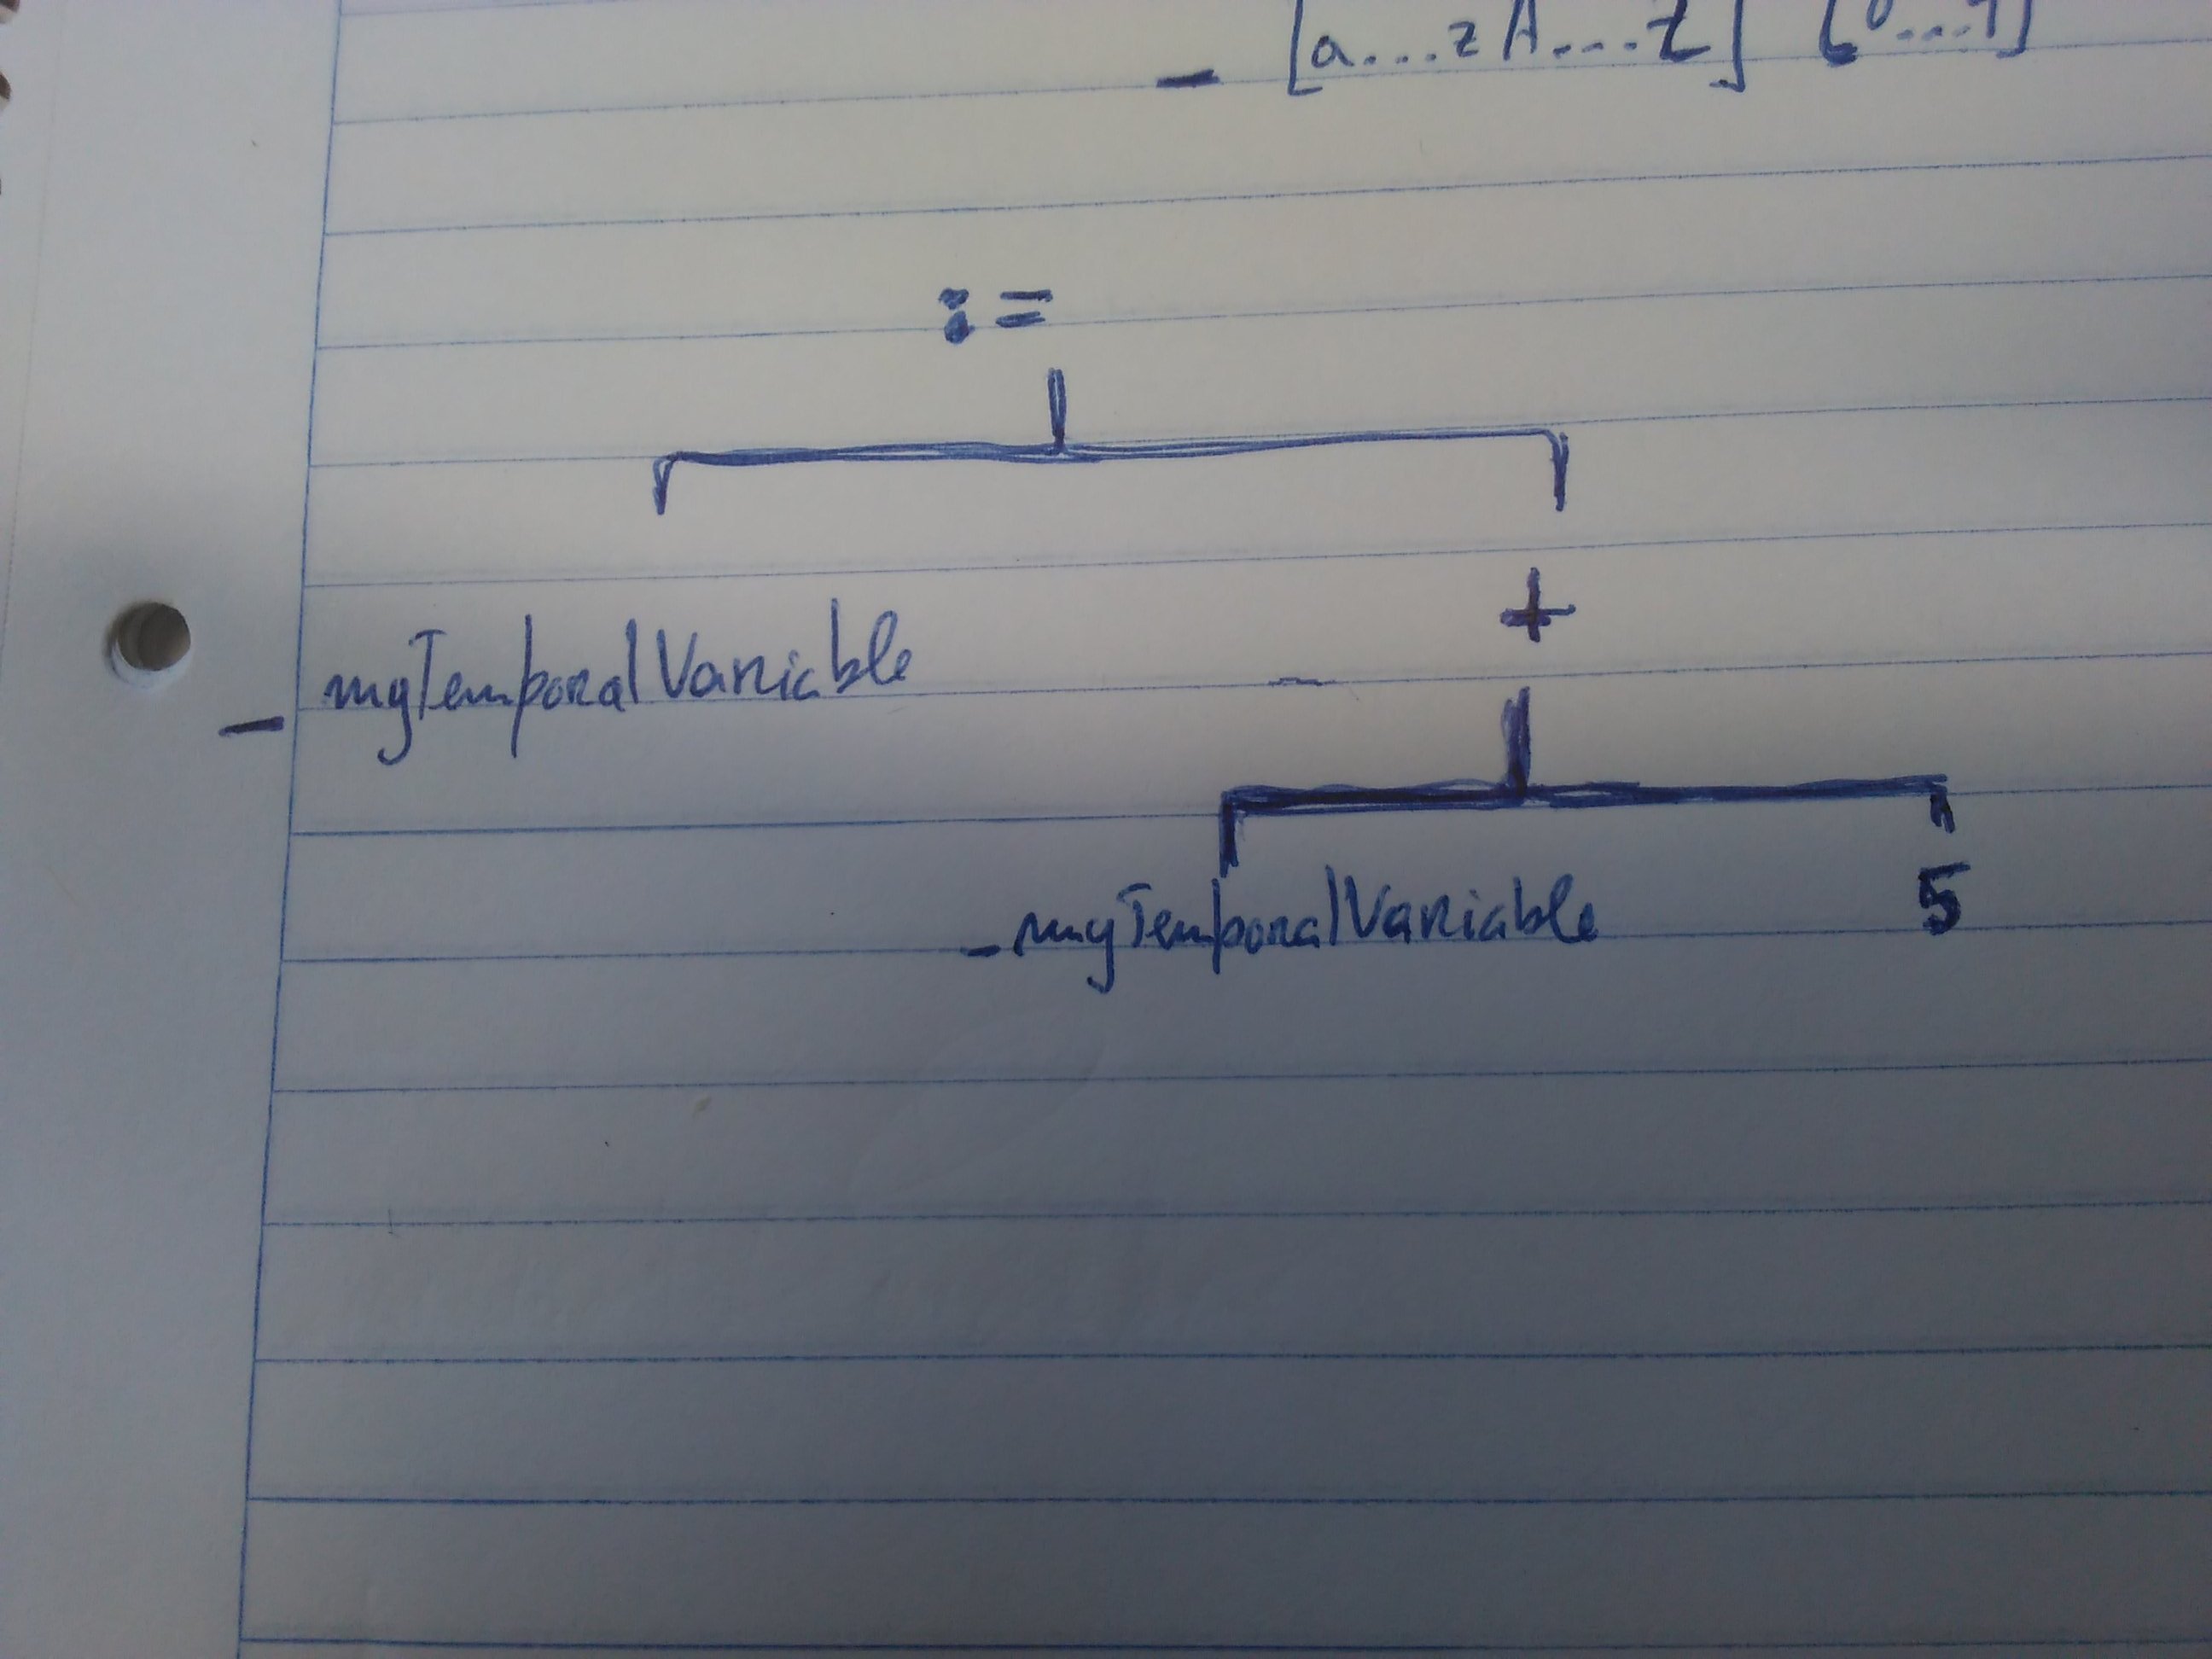 _ [a...zA...Z]
:=
_myTemporalVariable +
_myTemporalVariable 5